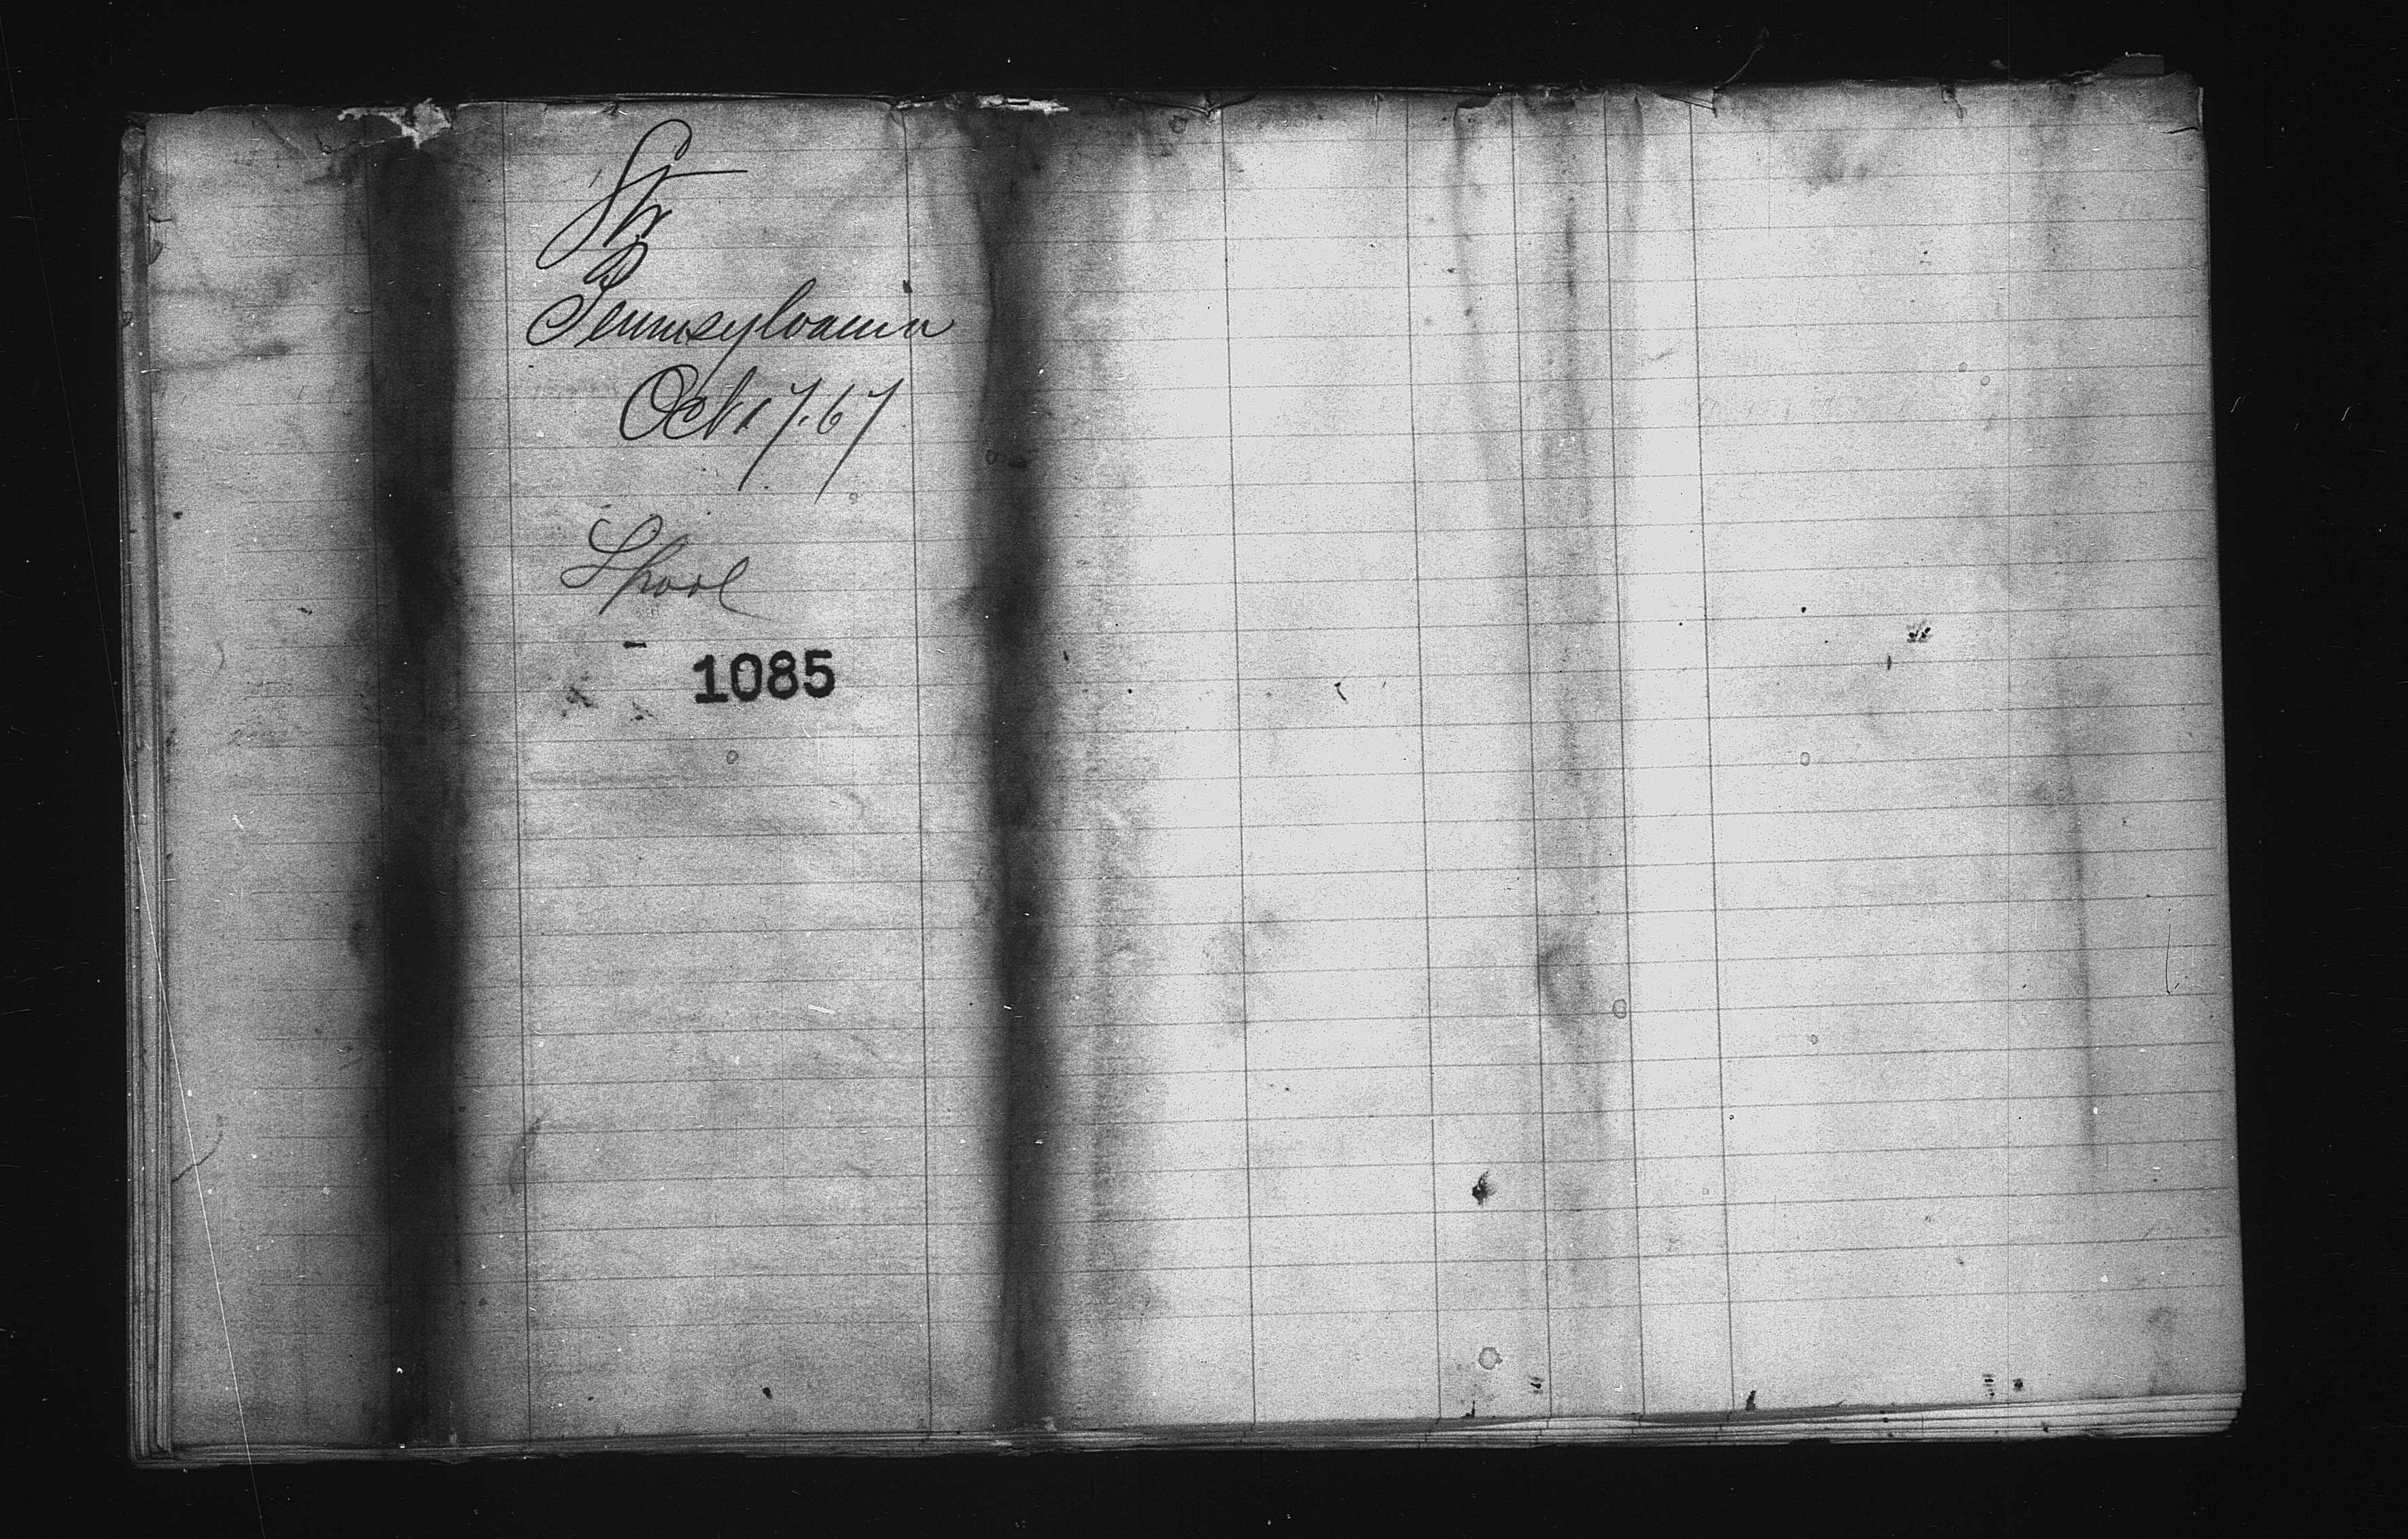 Str
Pennsylvania
Oct 17.67
L'pool
1085